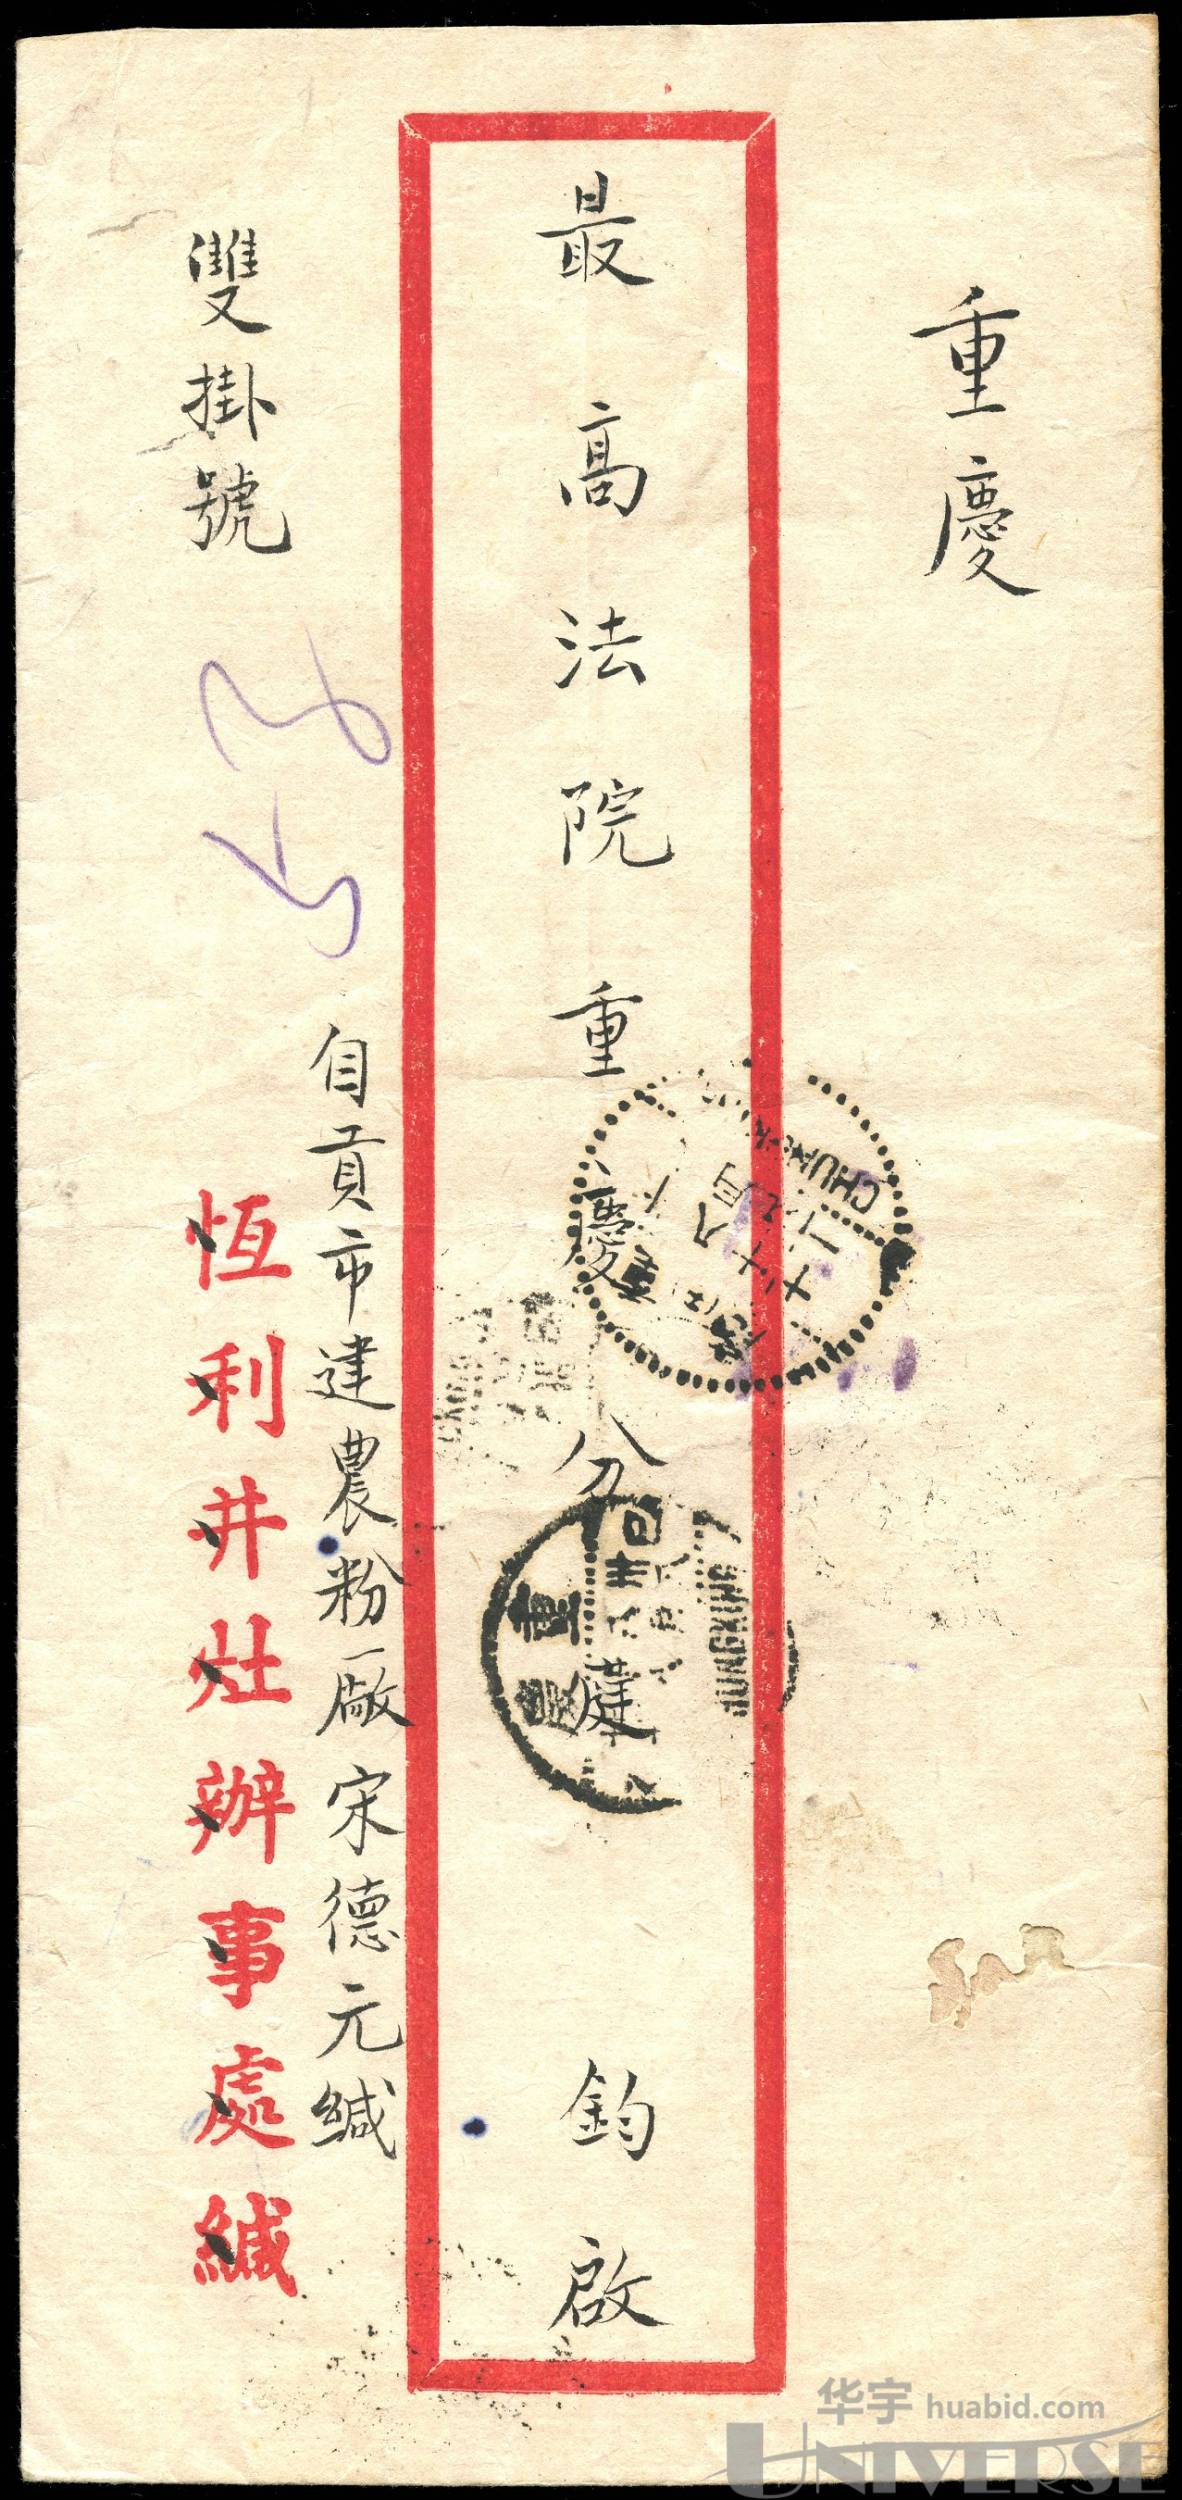 重慶
最高法院重慶分庭 鈞啟
雙掛號
自貢市建農粉廠宋德元緘
恆利井灶辦事處緘
重慶
华宇 huabid.com
UNIVERSE